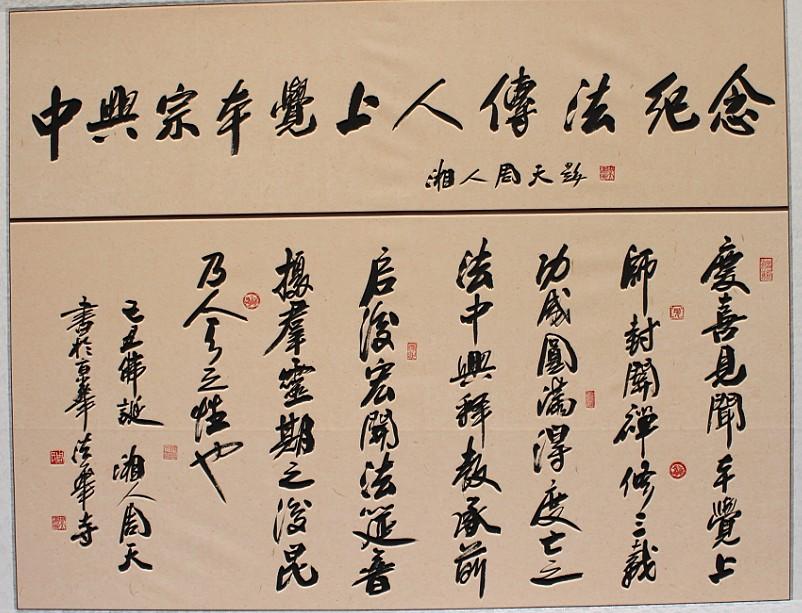 中興宗本覺上人傳法紀念
湘人周天題
慶喜見聞本覺上
師封關禪修三載
功成圓滿得度亡之
法中興釋教承前
启後宏開法筵普
攝羣靈期之後昆
乃人天之性也
己丑佛誕湘人周天
書於京華法華寺